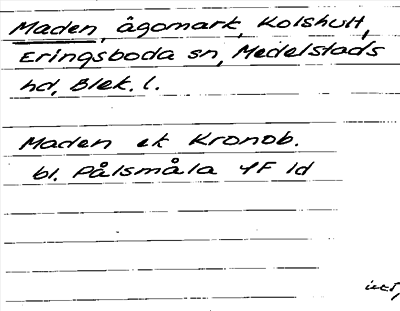 Maden, ågomark, Kolshult,
Eringsboda sn, Medelstads
hd, Blek. l.
Maden ek Kronob.
bl. Pålsmåla 4F 1d